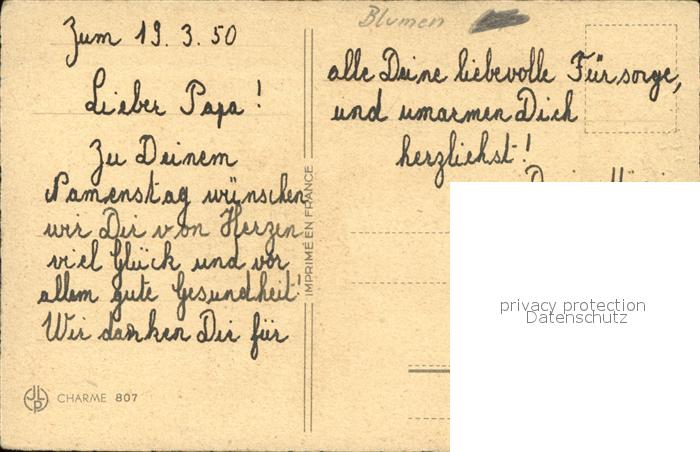 Zum 19. 3. 50
Lieber Papa!
Zu Deinem
Namenstag wünschen
wir Dir von Herzen
viel Glück und vor
allem gute Gesundheit!
Wir danken Dir für
JLP CHARME 807
IMPRIMÉ EN FRANCE
Blumen
alle Deine liebevolle Fürsorge,
und umarmen Dich
herzlichst!
privacy protection
Datenschutz